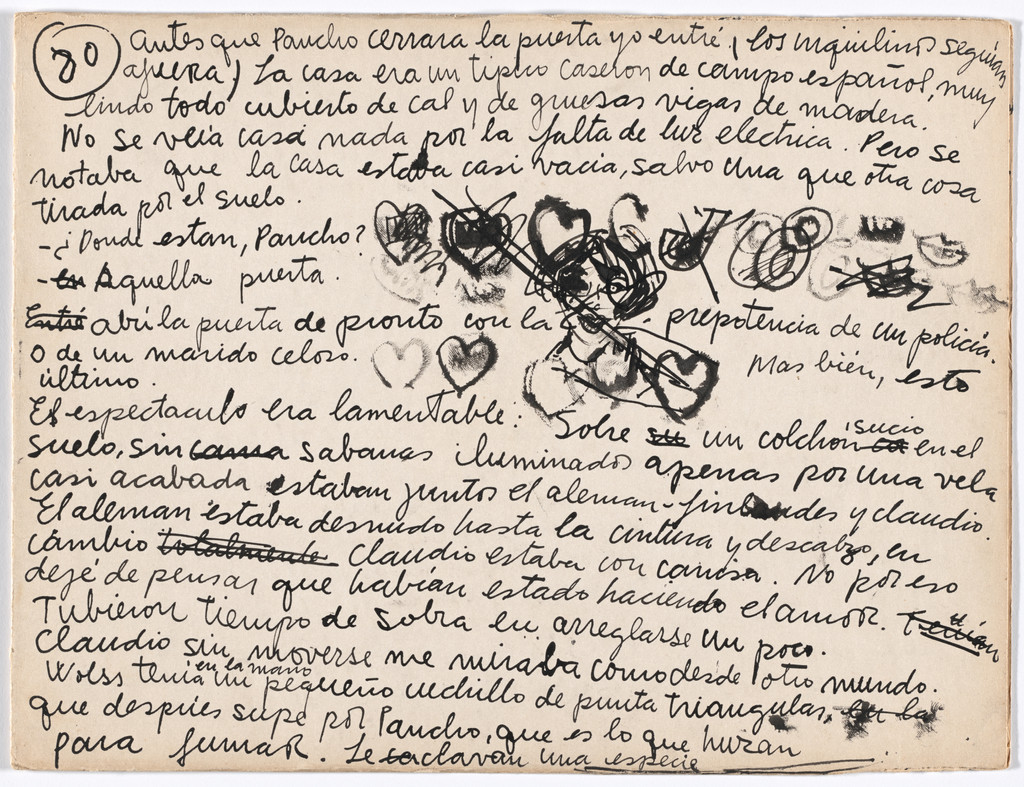 80
Antes que Paucho cerrara la puerta yo entré, (los inquilinos seguían
afuera) La casa era un típico caserón de campo español, muy
lindo todo cubierto de cal y de gruesas vigas de madera.
No se veia casi nada por la falta de luz electrica. Pero se
notaba que la casa estaba casi vacia, salvo una que otra cosa
tirada por el suelo.
-¿Donde estan, Paucho?
-en Aquella puerta.
Entré abrí la puerta de pronto con la prepotencia de un policía.
O de un marido celoso. Mas bién, esto
último.
El espectaculo era lamentable: Sobre su un colchón sucio en el
suelo, sin cama sabanas iluminados apenas por una vela
casi acabada estaban juntos el aleman-finlandes y claudio.
El aleman estaba desnudo hasta la cintura y descalzo, en
cambio totalmente Claudio estaba con camisa. No por eso
dejé de pensar que habían estado haciendo el amor. Tenían
Tubieron tiempo de sobra en arreglarse un poco.
Claudio sin moverse me miraba como desde otro mundo.
Wolss tenía en la mano un pequeño cuchillo de punta triangular, en la
que despúes supe por Paucho, que es lo que huzan
para fumar. Le clavan una especie